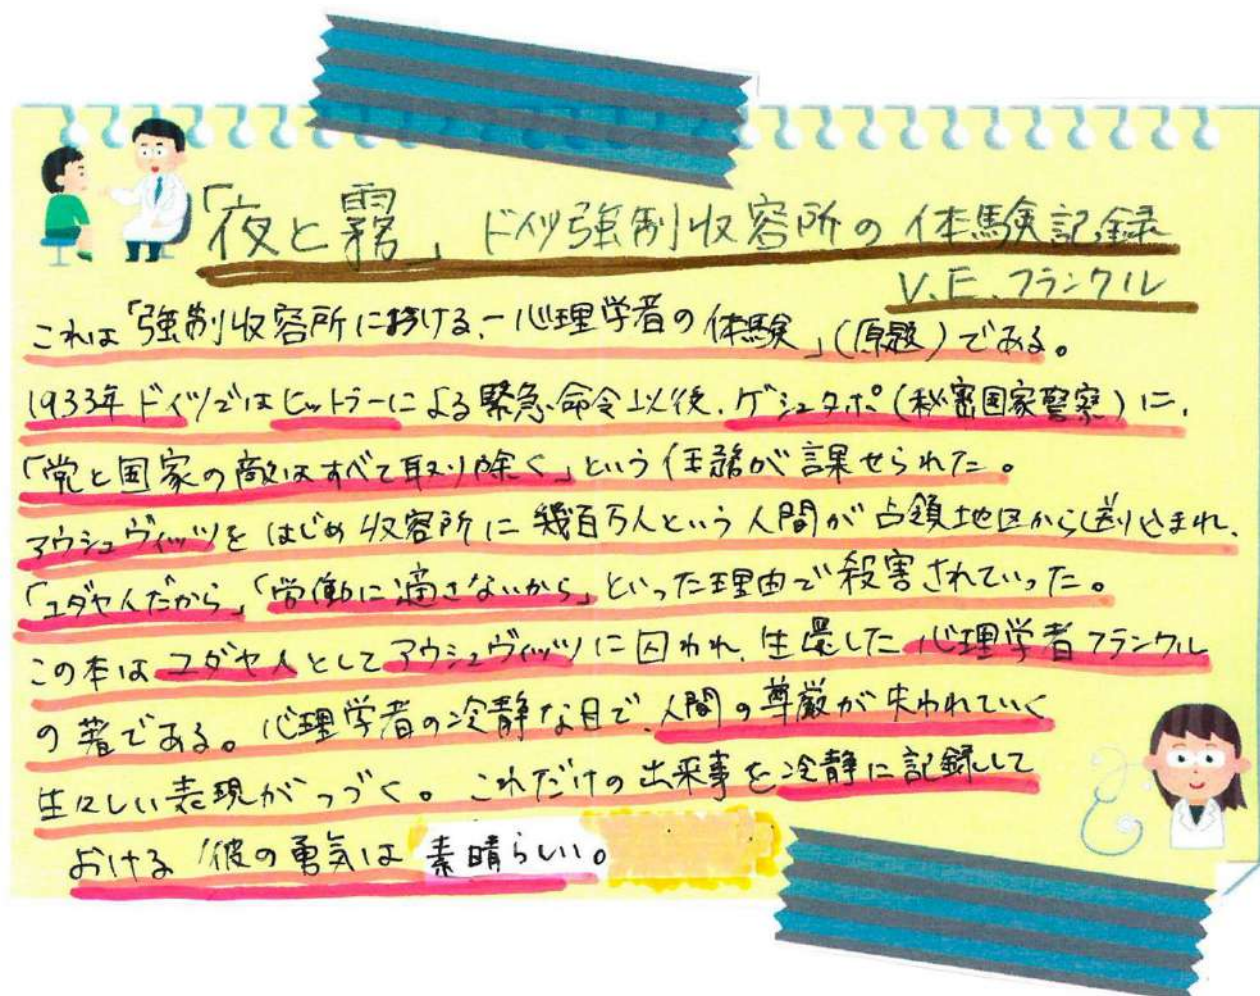 「夜と霧」ドイツ強制収容所の体験記録
V.E.フランクル
これは「強制収容所における一心理学者の体験」(原題)である。
1933年ドイツではヒットラーによる緊急命令以後、ゲシュタポ(秘密国家警察)に、
「党と国家の敵はすべて取り除く」という任務が課せられた。
アウシュヴィッツをはじめ収容所に幾百万人という人間が占領地区から送り込まれ、
「ユダヤ人だから」「労働に適さないから」といった理由で殺害されていった。
この本はユダヤ人としてアウシュヴィッツに囚われ、生還した心理学者フランクル
の著である。心理学者の冷静な目で、人間の尊厳が失われていく
生々しい表現がつづく。これだけの出来事を冷静に記録して
おける彼の勇気は素晴らしい。